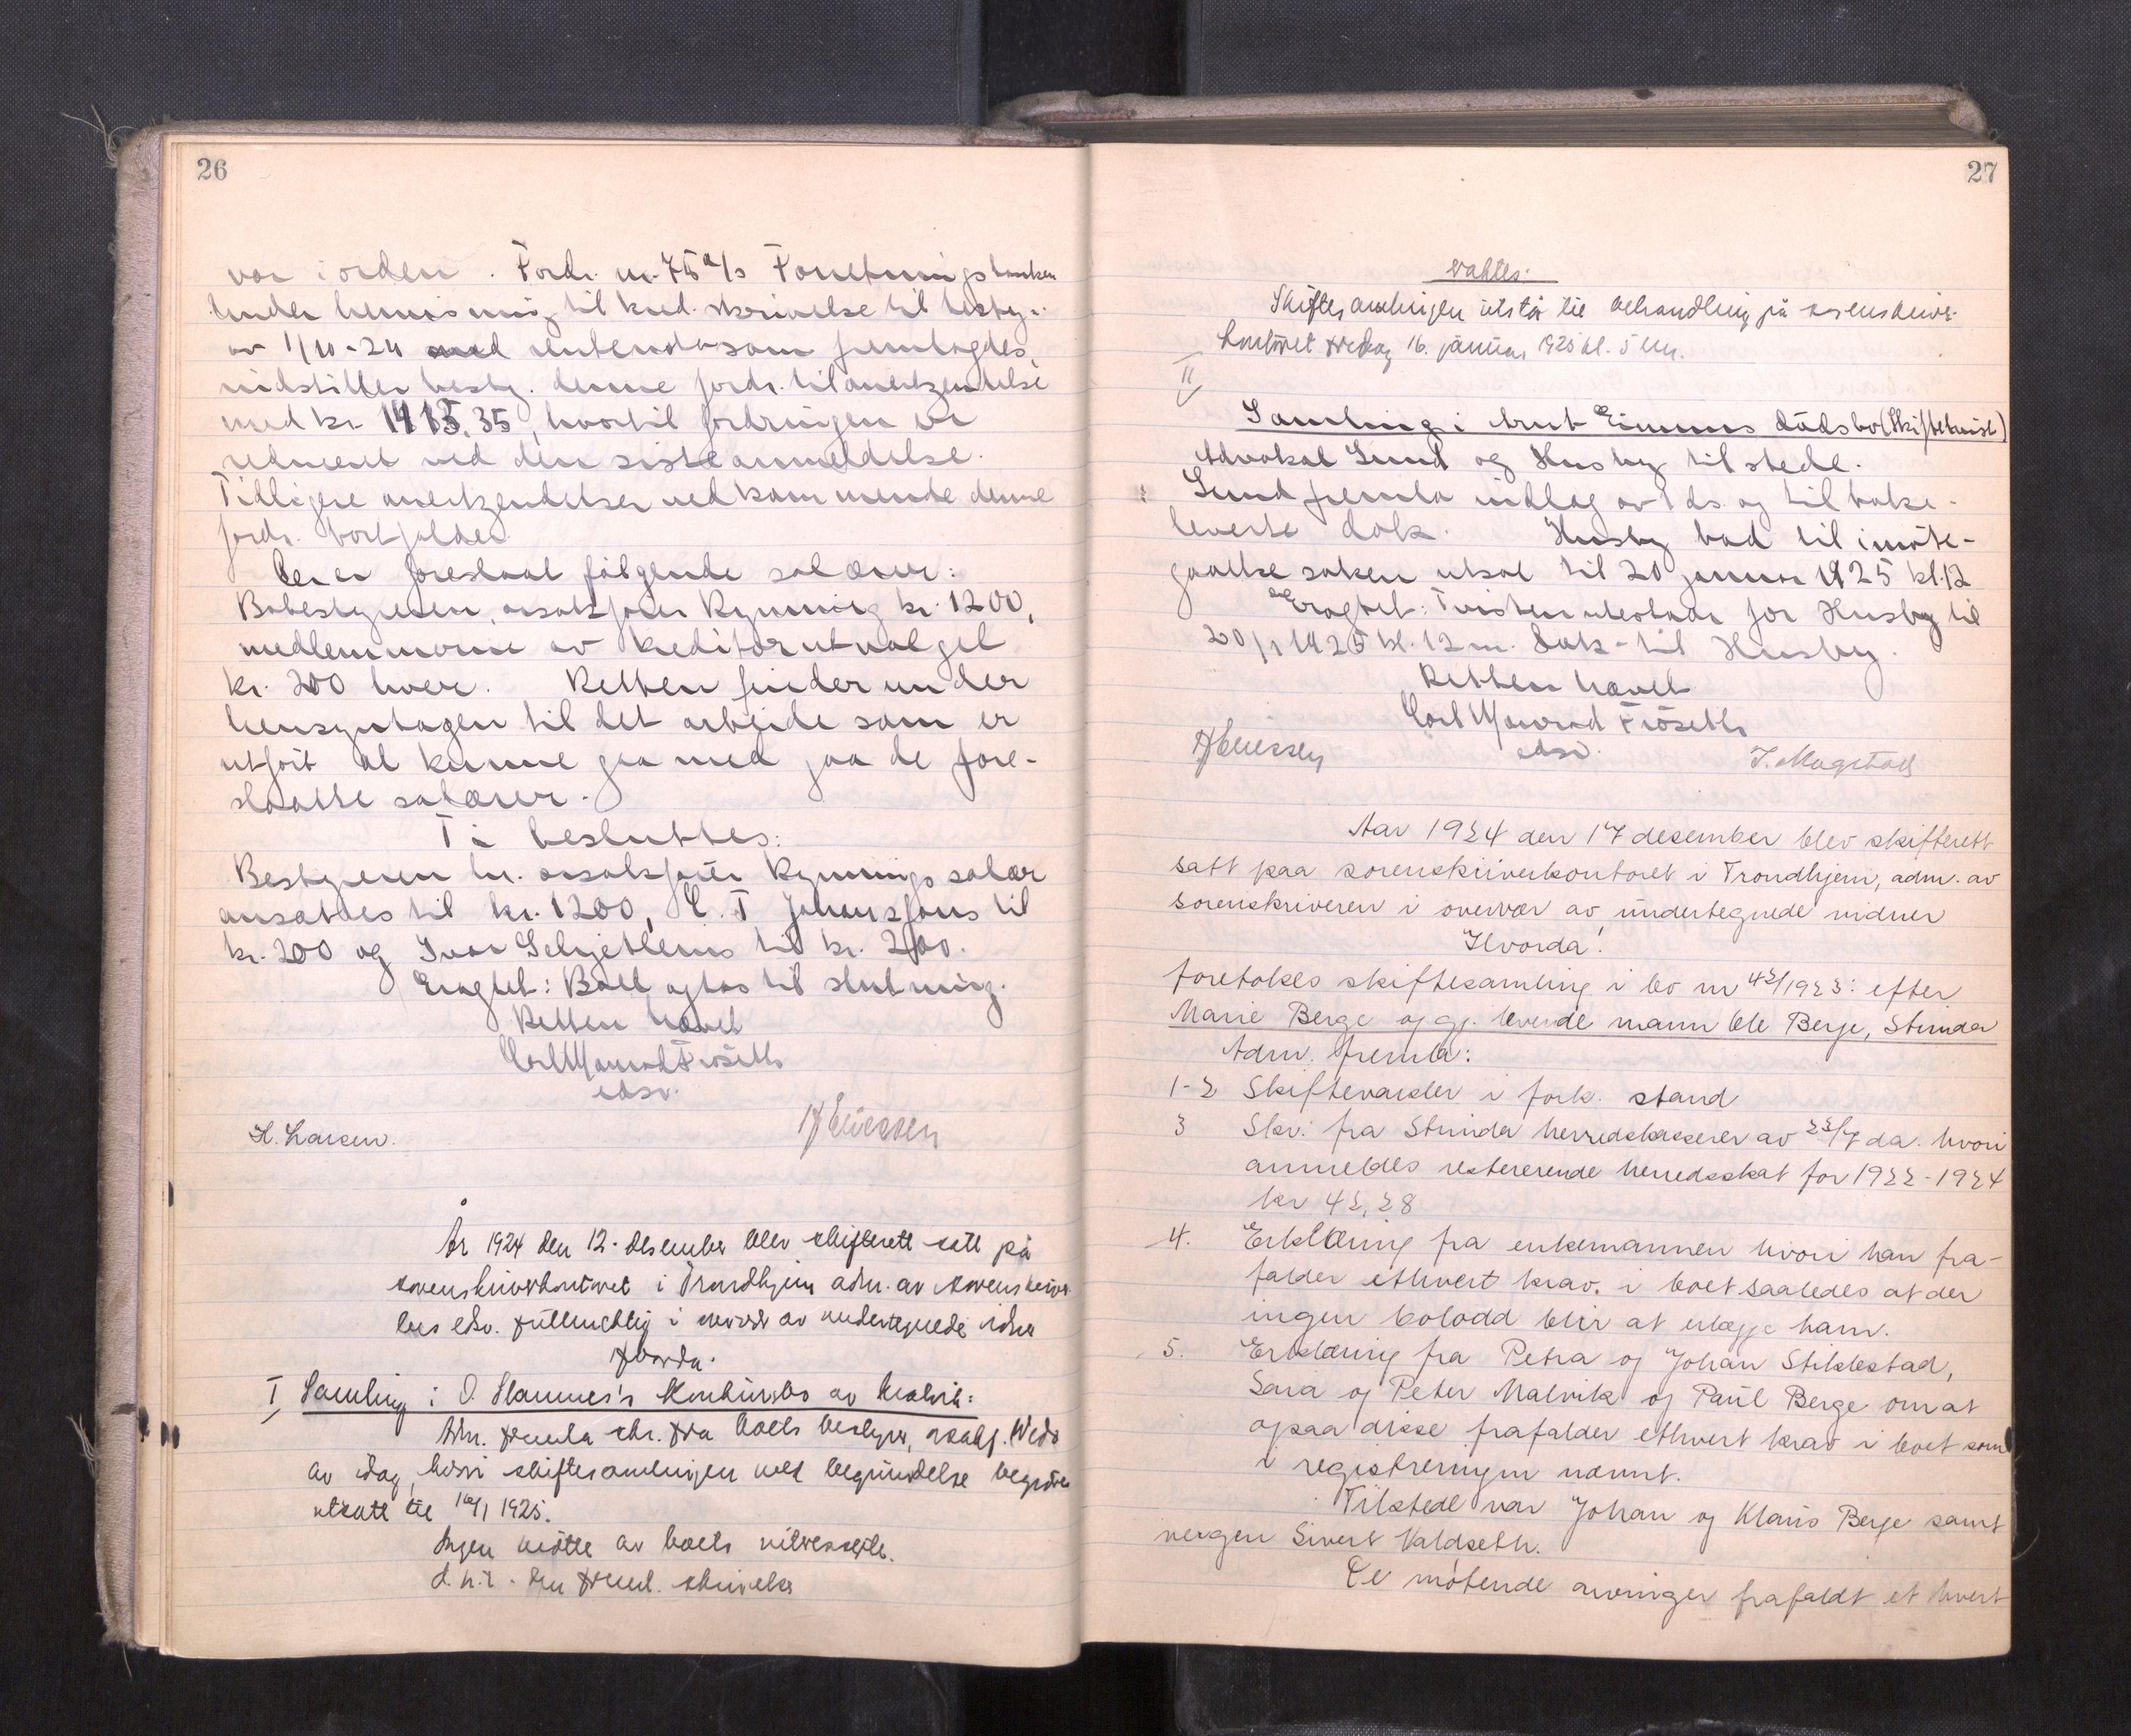 26
var i orden. Fordr. nr. 75 a/s Forretningsbanken
under henvisning til kred. skrivelse til besty.
av 1/10-24 med rentenota som fremlagdes,
indstiller besty. denne fordr. til anerkjendelse
med kr. 1415,35, hvortil fordringen er
redusert ved den siste anmeldelse.
Tidligere anerkjendelser vedkommende denne
fordr. bortfalder.
Der er foreslaat følgende salærer:
Bobestyreren, o.r.sakfører Rynning kr. 1200,
medlemmerne av kreditorutvalget
kr. 200 hver. Retten finder under
hensyntagen til det arbeide som er
utført at kunne gaa med paa de fore-
slaatte salærer.
Ti besluttes:
Bestyreren hr. o.r.sakfører Rynnings salær
ansættes til kr. 1200, C. T. Johansens til
kr. 200 og Ivar Schjetleins til kr. 200.
Eragtet: Boet optas til slutning.
Retten hævet
Carl Konrad Frøseth
edsv.
H. Larsen. A Ellessen
År 1924 den 12. desember blev skifterett satt på
sorenskriverkontoret i Trondhjem adm. av sorenskrive-
rens edsv. fullmektig i overvær av undertegnede vidner
Hvorda:
I Samling i O. Stamnes's konkursbo av Malvik:
Adm. fremla skr. fra boets bestyrer, o.r.sakf. Wedø
av idag, hvori skiftesamlingen med begrundelse begjæres
utsatt til 16/1 1925.
Ingen møtte av boets vitterlige.
D. n. t. den freml. skrivelse
27
vahtes:
Skiftesamlingen utstår til behandling på sorenskriver-
kontoret fredag 16. januar 1925 kl. 5 em.
II
Samling i brut Einums dødsbo (Skiftetvist)
Advokat Lund og Husby tilstede.
Lund fremla indlæg av 1 ds. og tilbake-
leverte dok. Husby bad til imøte-
gaaelse saken utsat til 20 januar 1925 kl. 12
Eragtet: Tvisten utestaar for Husby til
20/1 1925 kl. 12 m. Dok. til Husby.
Retten hævet
Carl Konrad Frøseth
edsv.
A Ellessen J. Magstad
Aar 1924 den 17 desember blev skifterett
satt paa sorenskriverkontoret i Trondhjem, adm. av
sorenskriveren i overvær av undertegnede vidner
Hvorda:
foretokes skiftesamling i bo nr 42/1923: efter
Marie Berge og gj. levende mann Ole Berge, Strinda
Adm. fremla:
1-2 Skiftevarsler i fork. stand
3 Skr. fra Strinda herredskasserer av 22/7 da. hvori
anmeldes resterende herredsskat for 1922-1924
kr 42,28
4. Erklæring fra enkemannen hvori han fra-
falder ethvert krav i boet saaledes at der
ingen bolodd blir at utlægge ham.
5. Erklæring fra Petra og Johan Stiklestad,
Sara og Peter Malvik og Paul Berge om at
ogsaa disse frafalder ethvert krav i boet som
i registreringen nævnt.
Tilstede var Johan og Klaus Berge samt
vergen Sivert Valdseth.
De møtende arvinger frafaldt et hvert